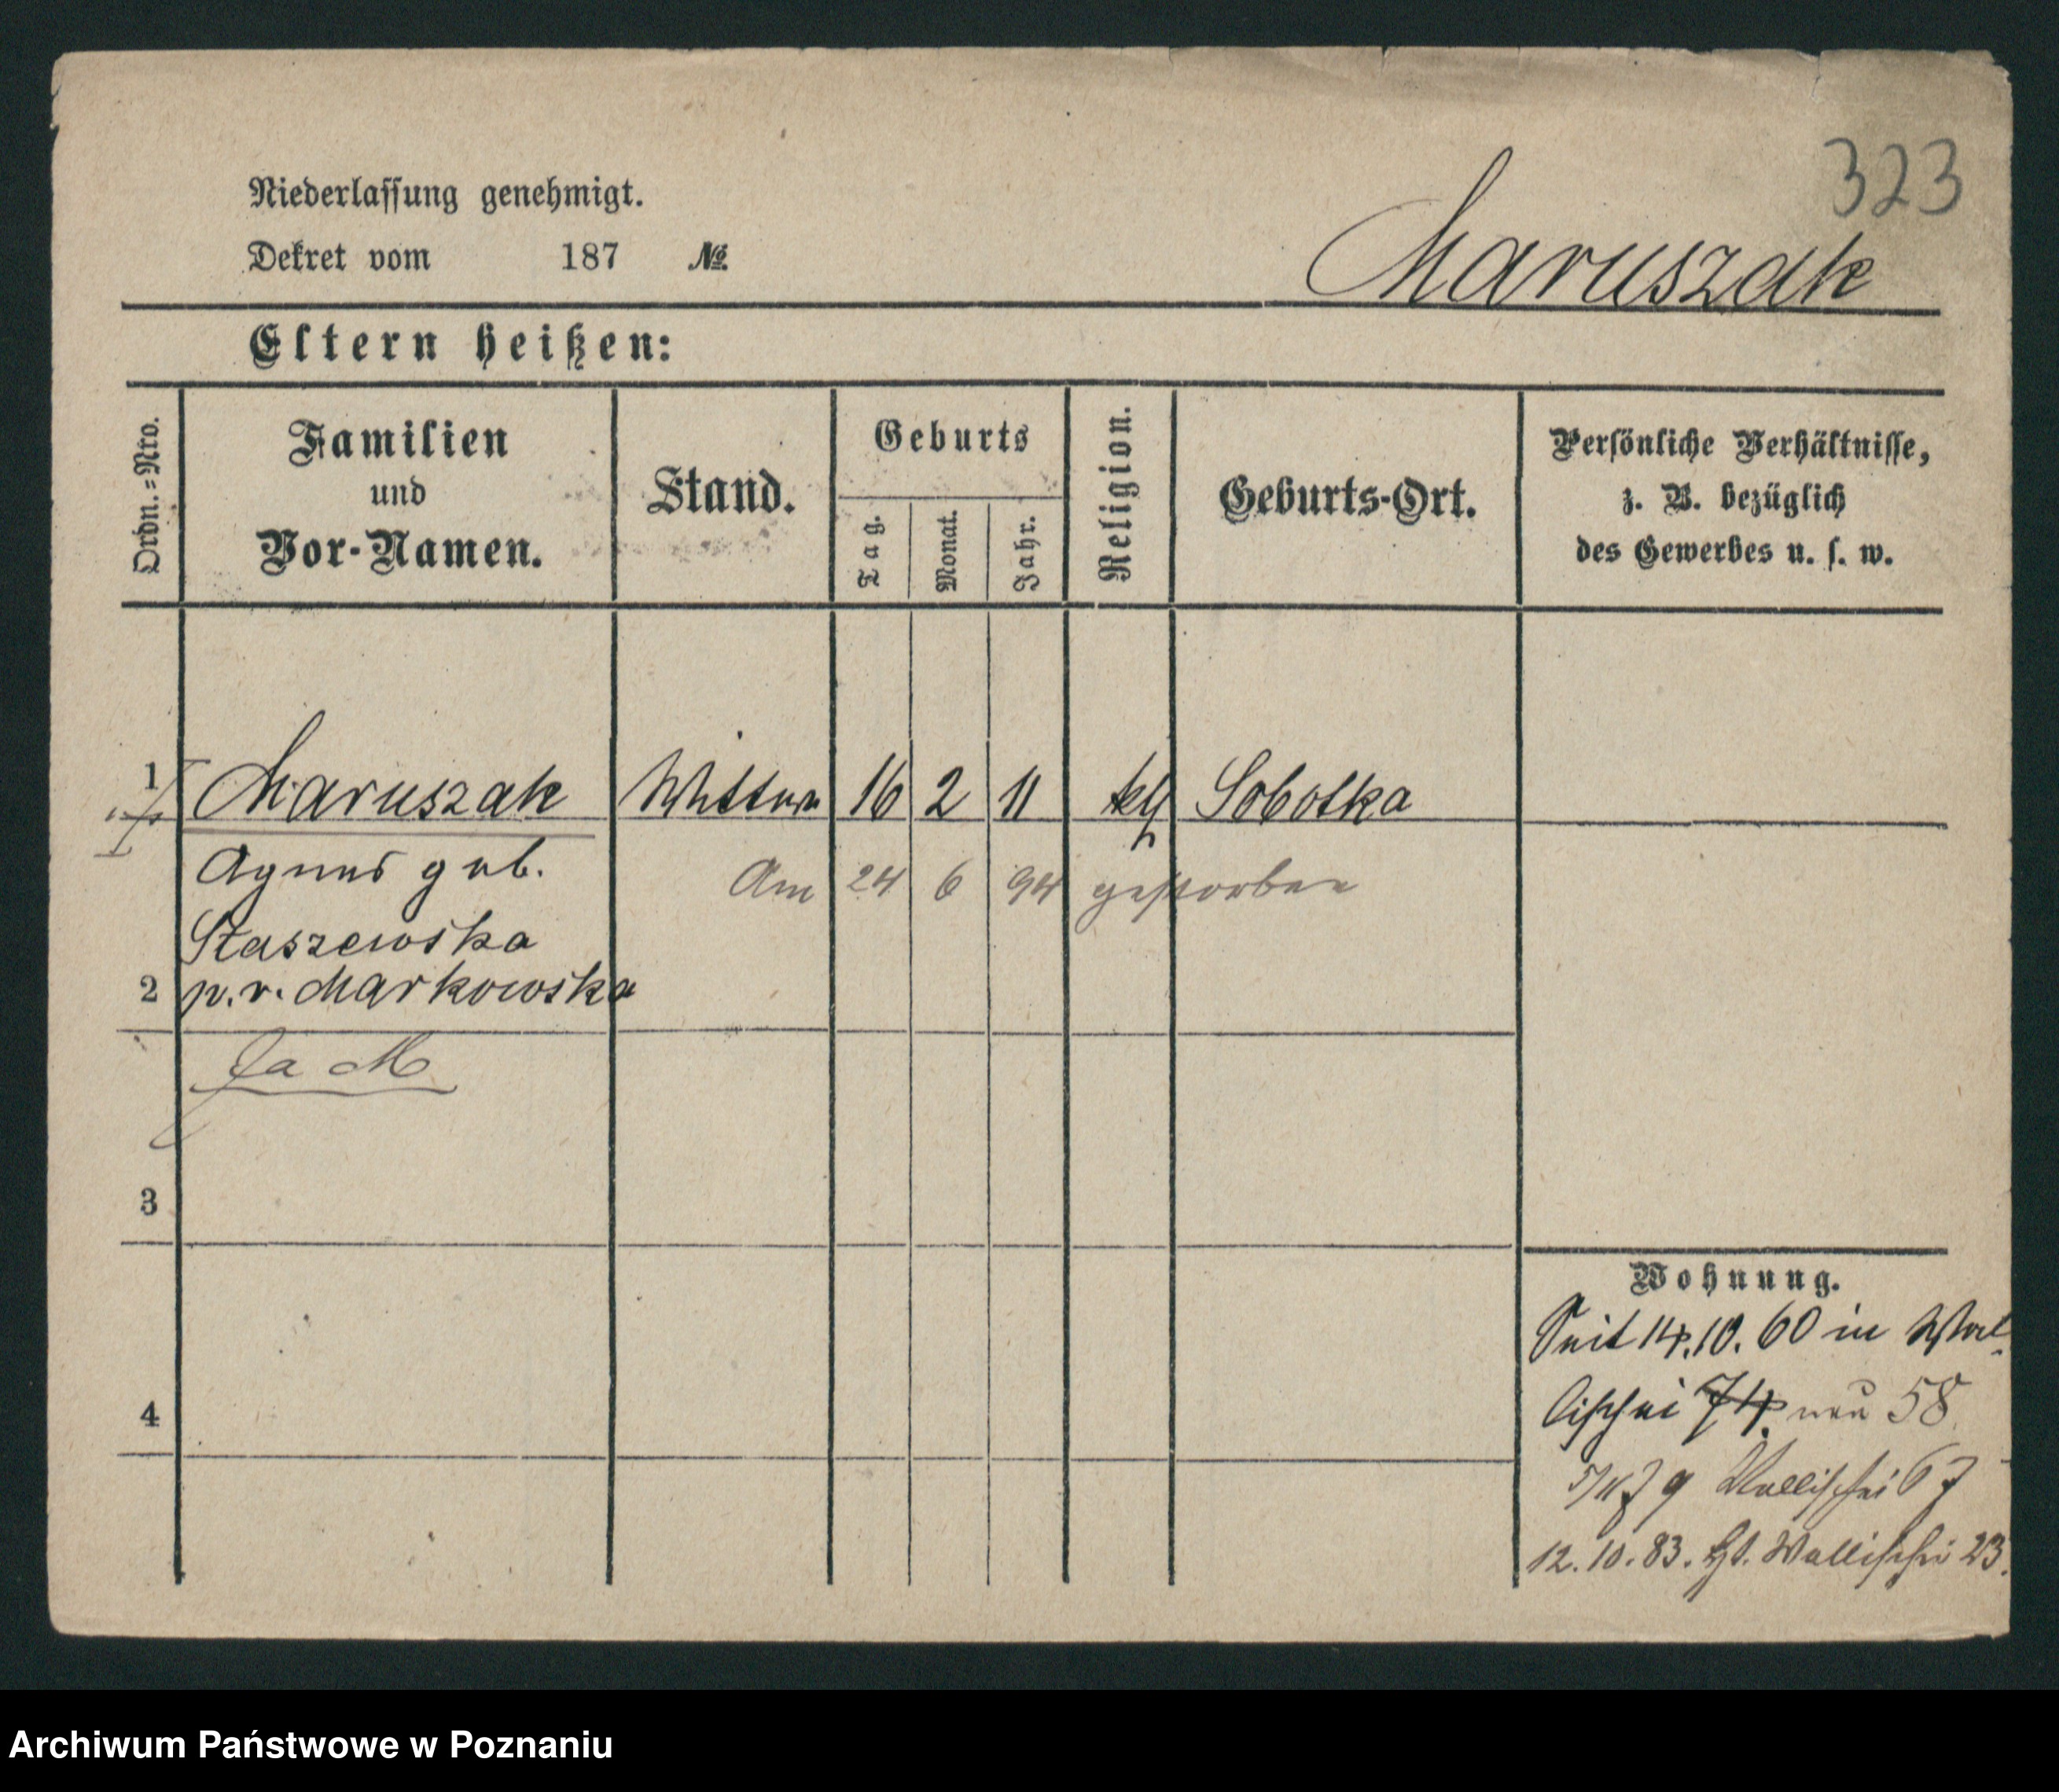 323
Niederlassung genehmigt.
Dekret vom 187 №
Maruszak
Eltern heißen:
Ordn.-Nro.
Familien
und
Vor-Namen.
Stand.
Geburts
Tag.
Monat.
Jahr.
Religion.
Geburts-Ort.
Persönliche Verhältnisse,
z. B. bezüglich
des Gewerbes u. s. w.
1 Maruszak Wittwe 16 2 11 kth Sobotka
Agnes geb. Am 24 6 94 gestorben
Staszewska
2 p.v. Markowska
3
4
Wohnung.
Seit 14.10.60 in Wal-
lischei 74 neu 58
79 Wallischei 67
12.10.83. Wallischei 23.
Archiwum Państwowe w Poznaniu